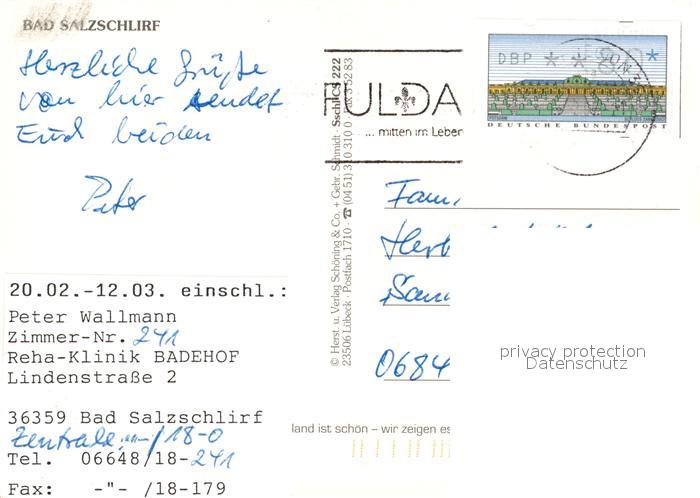 BAD SALZSCHLIRF
Herzliche Grüße
von hier sendet
Euch beiden
Peter
20.02.-12.03. einschl.:
Peter Wallmann
Zimmer-Nr. 241
Reha-Klinik BADEHOF
Lindenstraße 2
36359 Bad Salzschlirf
Zentrale: /18-0
Tel. 06648/18-241
Fax: -"- /18-179
© Herst. u. Verlag Schöning & Co. + Gebr. Schmidt · SschlCS 222
23506 Lübeck · Postfach 1710 · ☎ (0451) 310 310
FULDA
... mitten im Leben
DBP
DEUTSCHE BUNDESPOST
Fam.
Herb
0684
privacy protection
Datenschutz
land ist schön – wir zeigen es